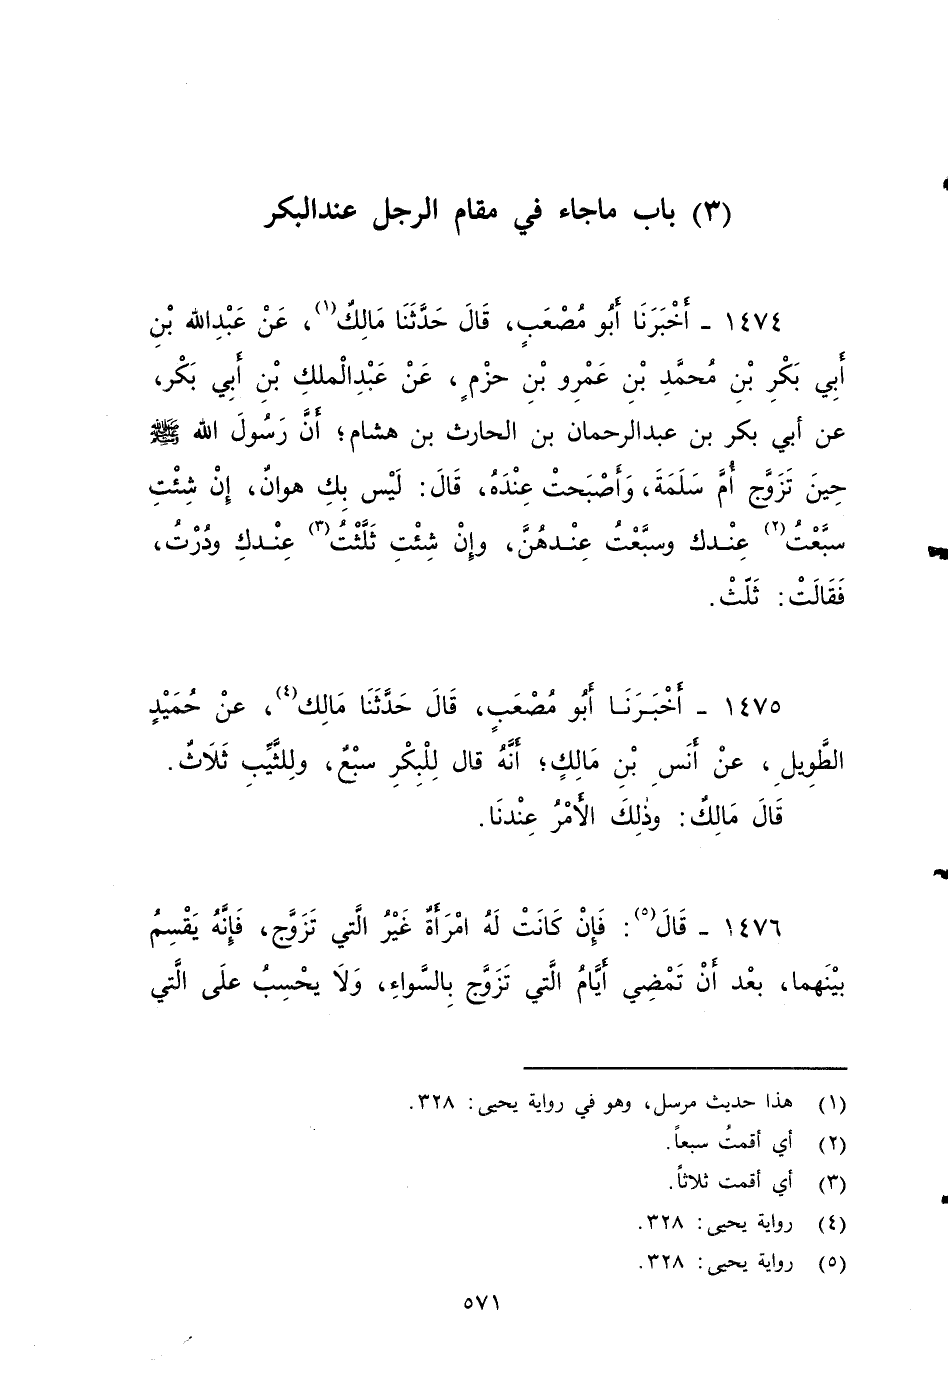 (٣) باب ماجاء في مقام الرجل عندالبكر
١٤٧٤ ـ أَخْبَرَنَا أَبُو مُصْعَبٍ، قَالَ حَدَّثَنَا مَالِكٌ(١)، عَنْ عَبْدِالله بْنِ
أَبِي بَكْرِ بْنِ مُحمَّدِ بْنِ عَمْرِو بْنِ حزْمٍ، عَنْ عَبْدِالْملكِ بْنِ أَبِي بَكْر،
عن أبي بكر بن عبدالرحمان بن الحارث بن هشام؛ أَنَّ رَسُولَ الله ﷺ
حِينَ تَزَوَّج أُمَّ سَلَمَةَ، وَأَصْبَحتْ عِنْدَهُ، قَالَ: لَيْس بِكِ هوانٌ، إِنْ شِئْتِ
سبَّعْتُ(٢) عِنْدك وسبَّعْتُ عِنْدهُنَّ، وإِنْ شِئْتِ ثَلَّثْتُ(٣) عِنْدكِ ودُرْتُ،
فَقَالَتْ: ثَلِّثْ.
١٤٧٥ ـ أَخْبَرَنَا أَبُو مُصْعَبٍ، قَالَ حَدَّثَنَا مَالِك(٤)، عنْ حُمَيْدٍ
الطَّوِيلِ، عنْ أَنَسِ بْنِ مَالِكٍ؛ أَنَّهُ قال لِلْبِكْرِ سبْعٌ، ولِلثَّيِّبِ ثَلَاثٌ.
قَالَ مَالِكٌ: وذٰلِكَ الأَمْرُ عِنْدنَا.
١٤٧٦ ـ قَالَ(٥): فَإِنْ كَانَتْ لَهُ امْرَأَةٌ غَيْرُ الَّتي تَزَوَّج، فَإِنَّهُ يَقْسِمُ
بيْنَهما، بعْد أَنْ تَمْضِي أَيَّامُ الَّتي تَزَوَّج بِالسَّواءِ، وَلَا يحْسِبُ علَى الَّتي
(١) هذا حديث مرسل، وهو في رواية يحيى: ٣٢٨.
(٢) أي أقمتُ سبعاً.
(٣) أي أقمت ثلاثاً.
(٤) رواية يحيى: ٣٢٨.
(٥) رواية يحيى: ٣٢٨.
٥٧١